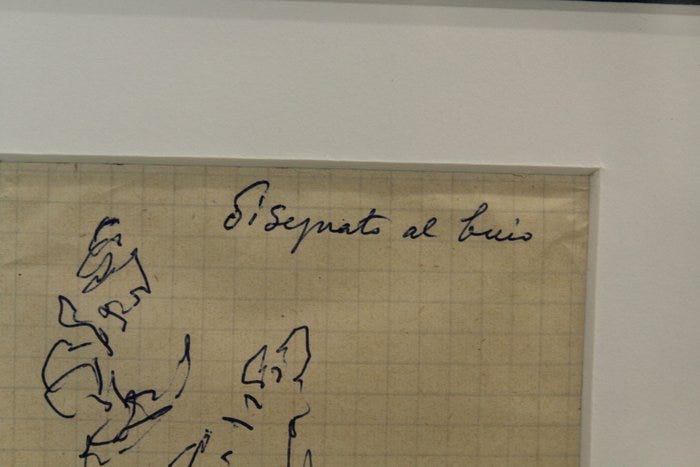 disegnato al buio